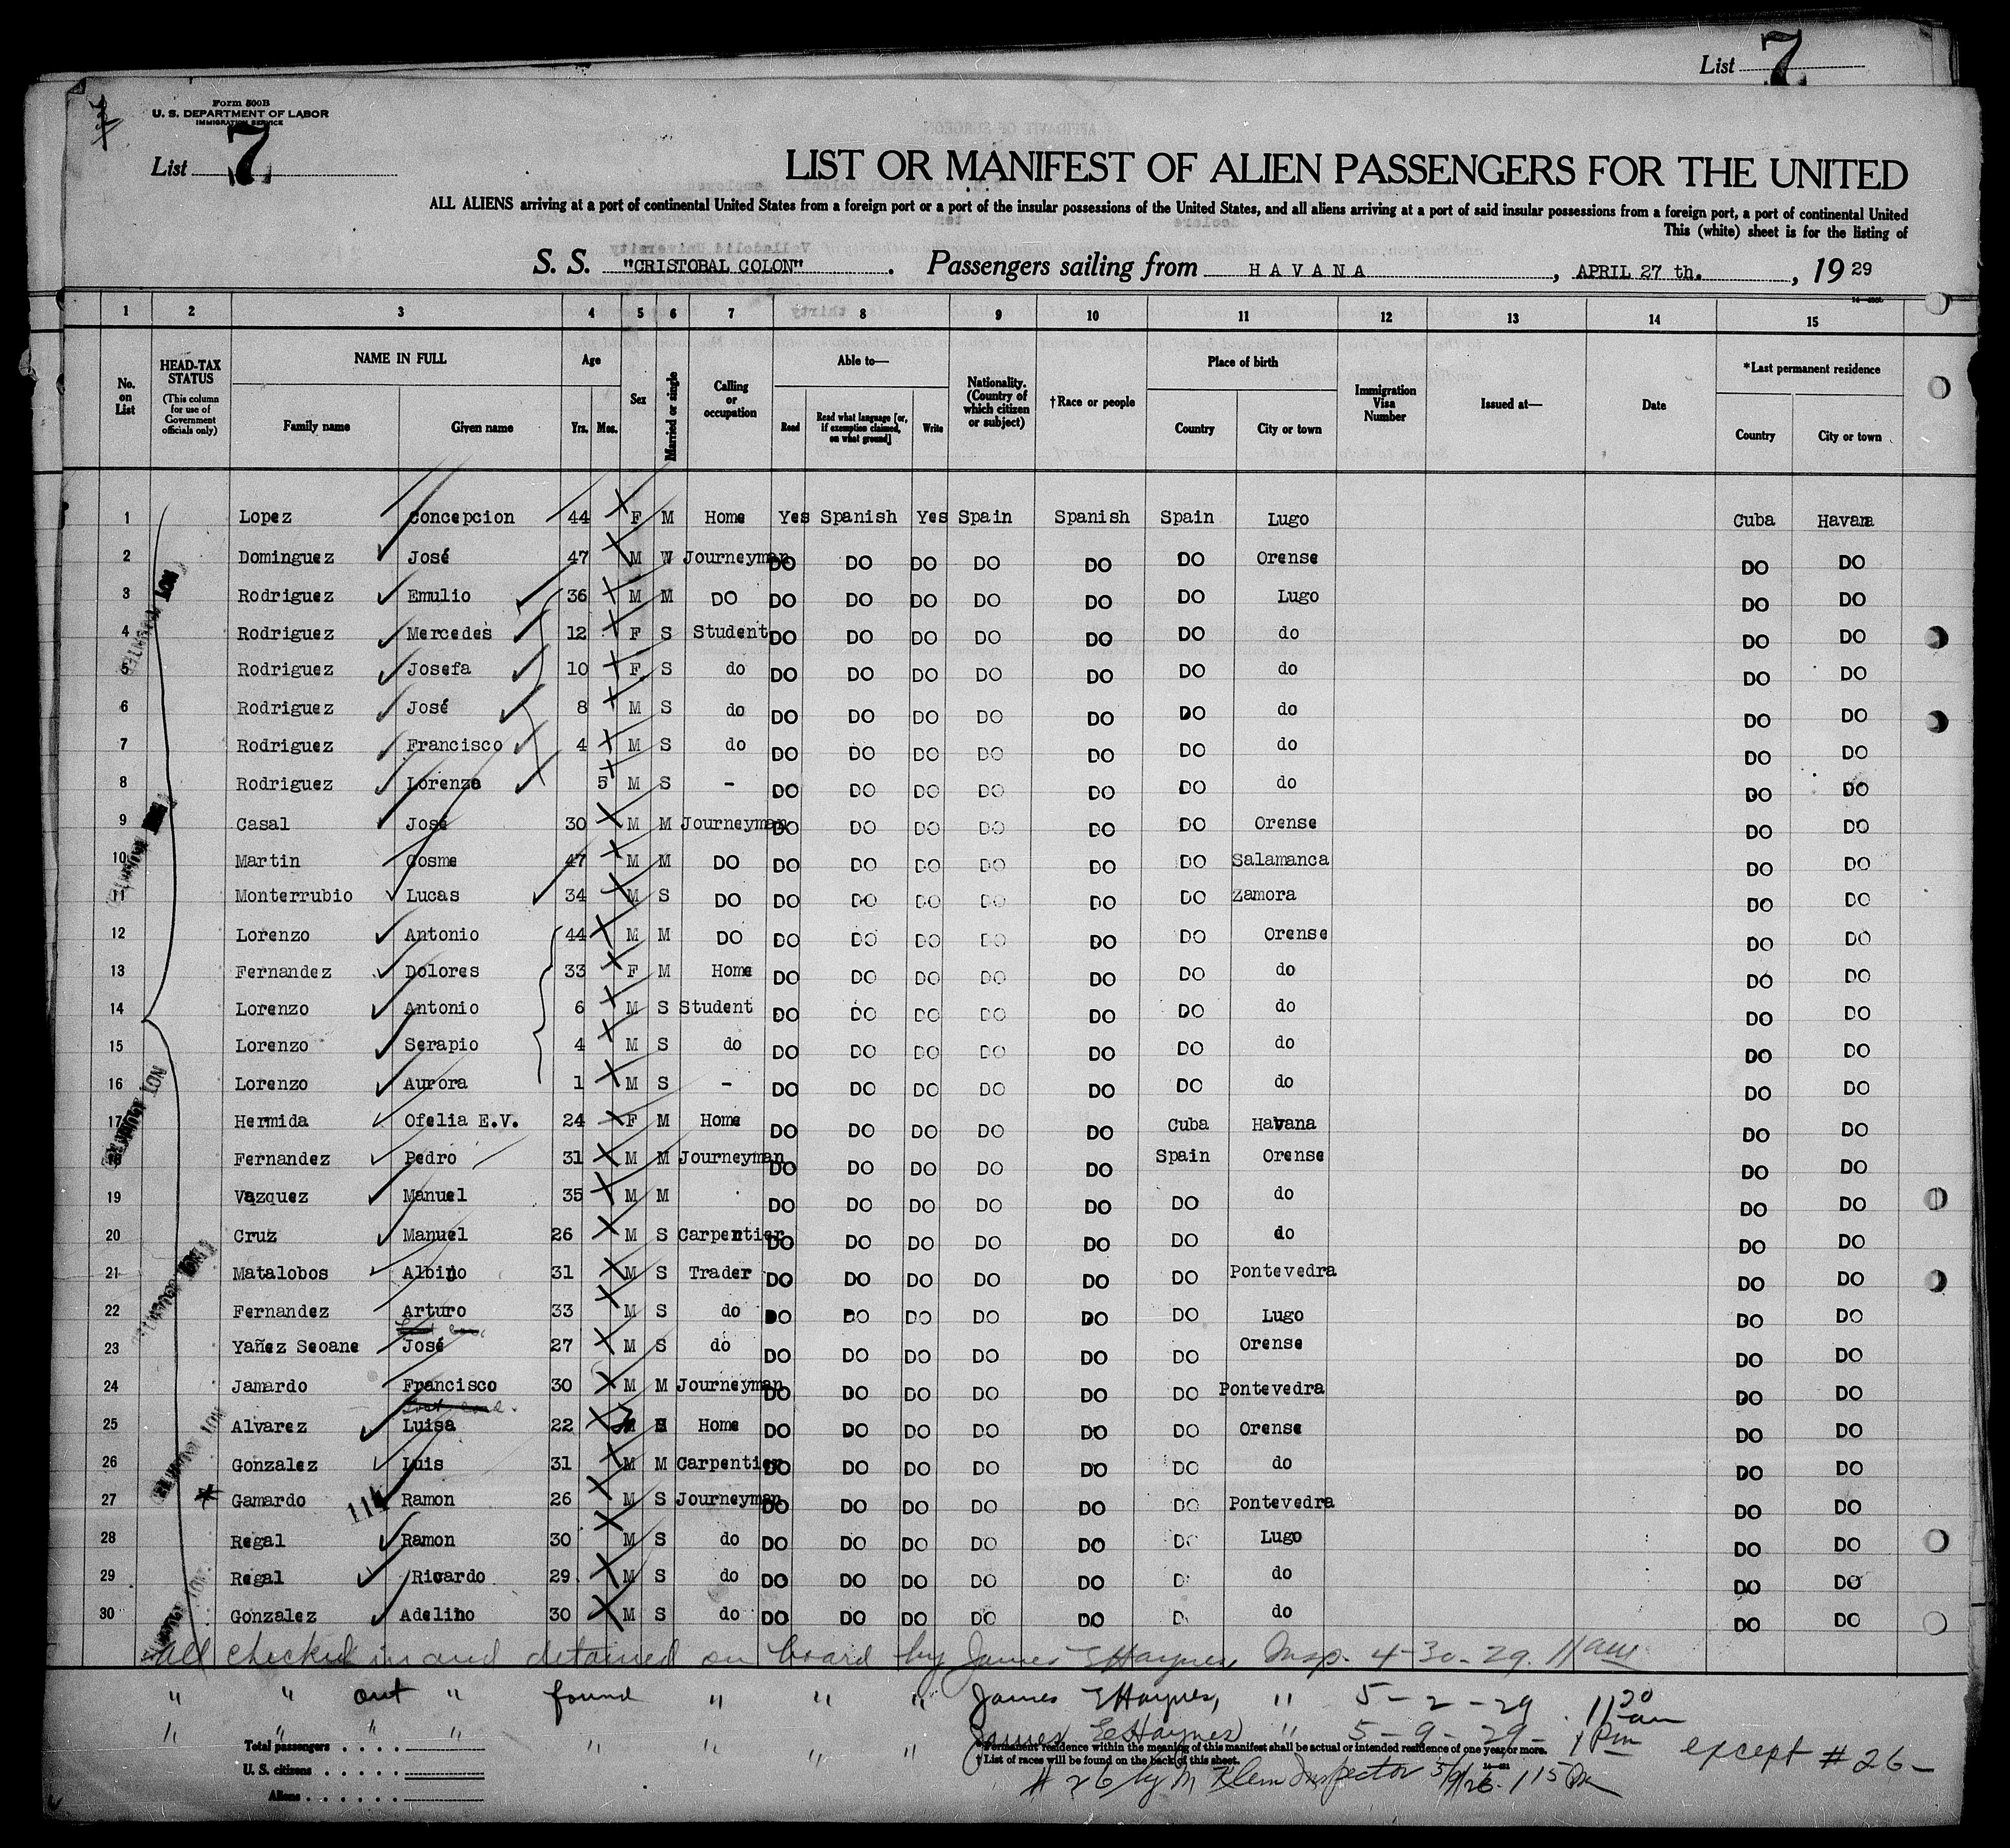 List 7
Form 500B
U. S. DEPARTMENT OF LABOR
IMMIGRATION SERVICE
List 7
LIST OR MANIFEST OF ALIEN PASSENGERS FOR THE UNITED
ALL ALIENS arriving at a port of continental United States from a foreign port or a port of the insular possessions of the United States, and all aliens arriving at a port of said insular possessions from a foreign port, a port of continental United
This (white) sheet is for the listing of
S. S. "CRISTOBAL COLON" . Passengers sailing from HAVANA , APRIL 27 th. , 19 29
1 2 3 4 5 6 7 8 9 10 11 12 13 14 15
No. on List HEAD-TAX STATUS (This column for use of Government officials only) NAME IN FULL Family name Given name Age Yrs. Mos. Sex Married or single Calling or occupation Able to— Read Read what language [or, if exemption claimed, on what ground] Write Nationality. (Country of which citizen or subject) †Race or people Place of birth Country City or town Immigration Visa Number Issued at— Date *Last permanent residence Country City or town
1 Lopez Concepcion 44 F M Home Yes Spanish Yes Spain Spanish Spain Lugo Cuba Havana
2 Dominguez José 47 M W Journeyman DO DO DO DO DO DO Orense DO DO
3 Rodriguez Emulio 36 M M DO DO DO DO DO DO DO Lugo DO DO
4 Rodriguez Mercedes 12 F S Student DO DO DO DO DO DO do DO DO
5 Rodriguez Josefa 10 F S do DO DO DO DO DO DO do DO DO
6 Rodriguez José 8 M S do DO DO DO DO DO DO do DO DO
7 Rodriguez Francisco 4 M S do DO DO DO DO DO DO do DO DO
8 Rodriguez Lorenzo 5 M S - DO DO DO DO DO DO do DO DO
9 Casal José 30 M M Journeyman DO DO DO DO DO DO Orense DO DO
10 Martin Cosme 47 M M DO DO DO DO DO DO DO Salamanca DO DO
11 Monterrubio Lucas 34 M S DO DO DO DO DO DO DO Zamora DO DO
12 Lorenzo Antonio 44 M M DO DO DO DO DO DO DO Orense DO DO
13 Fernandez Dolores 33 F M Home DO DO DO DO DO DO do DO DO
14 Lorenzo Antonio 6 M S Student DO DO DO DO DO DO do DO DO
15 Lorenzo Serapio 4 M S do DO DO DO DO DO DO do DO DO
16 Lorenzo Aurora 1 M S - DO DO DO DO DO DO do DO DO
17 Hermida Ofelia E.V. 24 F M Home DO DO DO DO DO Cuba Havana DO DO
18 Fernandez Pedro 31 M M Journeyman DO DO DO DO DO Spain Orense DO DO
19 Vazquez Manuel 35 M M DO DO DO DO DO DO do DO DO
20 Cruz Manuel 26 M S Carpentier DO DO DO DO DO DO do DO DO
21 Matalobos Albino 31 M S Trader DO DO DO DO DO DO Pontevedra DO DO
22 Fernandez Arturo 33 M S do DO DO DO DO DO DO Lugo DO DO
23 Yañez Seoane José 27 M S do DO DO DO DO DO DO Orense DO DO
24 Jamardo Francisco 30 M M Journeyman DO DO DO DO DO DO Pontevedra DO DO
25 Alvarez Luisa 22 Home DO DO DO DO DO DO Orense DO DO
26 Gonzalez Luis 31 M M Carpentier DO DO DO DO DO DO do DO DO
27 Gamardo 114 Ramon 26 M S Journeyman DO DO DO DO DO DO Pontevedra DO DO
28 Regal Ramon 30 M S do DO DO DO DO DO DO Lugo DO DO
29 Regal Ricardo 29 M S do DO DO DO DO DO D do DO DO
30 Gonzalez Adelino 30 M S do DO DO DO DO DO D do DO DO
All checked in and detained on board by James E Haynes Insp. 4-30-29. 11 am
" " out " found " " " James E Haynes, " 5-2-29 . 11 20 am
" " " " " " " " James E Haynes " 5-9-29- 1 Pm except # 26-
Total passengers . . . .
*Permanent residence within the meaning of this manifest shall be actual or intended residence of one year or more.
†List of races will be found on the back of this sheet.
U. S. citizens . . . . .
# 26 by M Klem Inspector 5/9/26- 1 15 Pm
Aliens . . . . . .